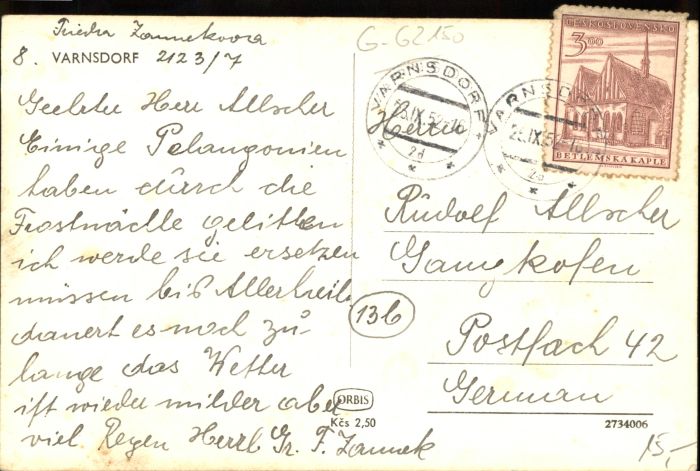 Frieda Zamnekova
8. VARNSDORF 2123/7
Geehrter Herr Allscher
Einige Pelangonien
haben dúrch die
Frostnächte gelitten
ich werde sie ersetzen
müssen bis Allerheil.
dauert es noch zú
lange das Wetter
ist wieder milder aber
viel Regen Herrl. Gr. F. Zamnek
G-G2150
VARNSDORF
23.IX.52-16
2d
VARNSDORF
23.IX.52-16
2d
ČESKOSLOVENSKO
3,00
BETLEMSKÁ KAPLE
Herrn
Rúdolf Allscher
Gangkofen
13b
Postfach 42
German
ORBIS
Kčs 2,50
2734006
15,-